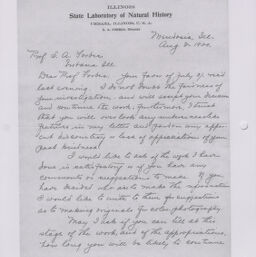 ILLINOIS
State Laboratory of Natural History
URBANA, ILLINOIS, U.S.A.
S. A. FORBES, Director
Ill.
Aug 2,
Prof. S. A. Forbes
Urbana Ill
Dear Prof Forbes: Your favor of July 31 rec'd
last evening. I do not doubt the fairness of
your investigation, and will accept your decision
and continue the work. Furthermore I trust
that you will overlook any unnecessary
features in my letter and pardon any
discourtesy or lack of appreciation of your
past kindness.
I would like to ask if the work I have
done is satisfactory or if you have any
comments or suggestions to make. If you
have decided who is to make the
I would like to write to them for suggestions
as to making originals for color photography.
May I ask if you can tell at this
stage of the work, and of the appropriations,
how long you will be likely to continue